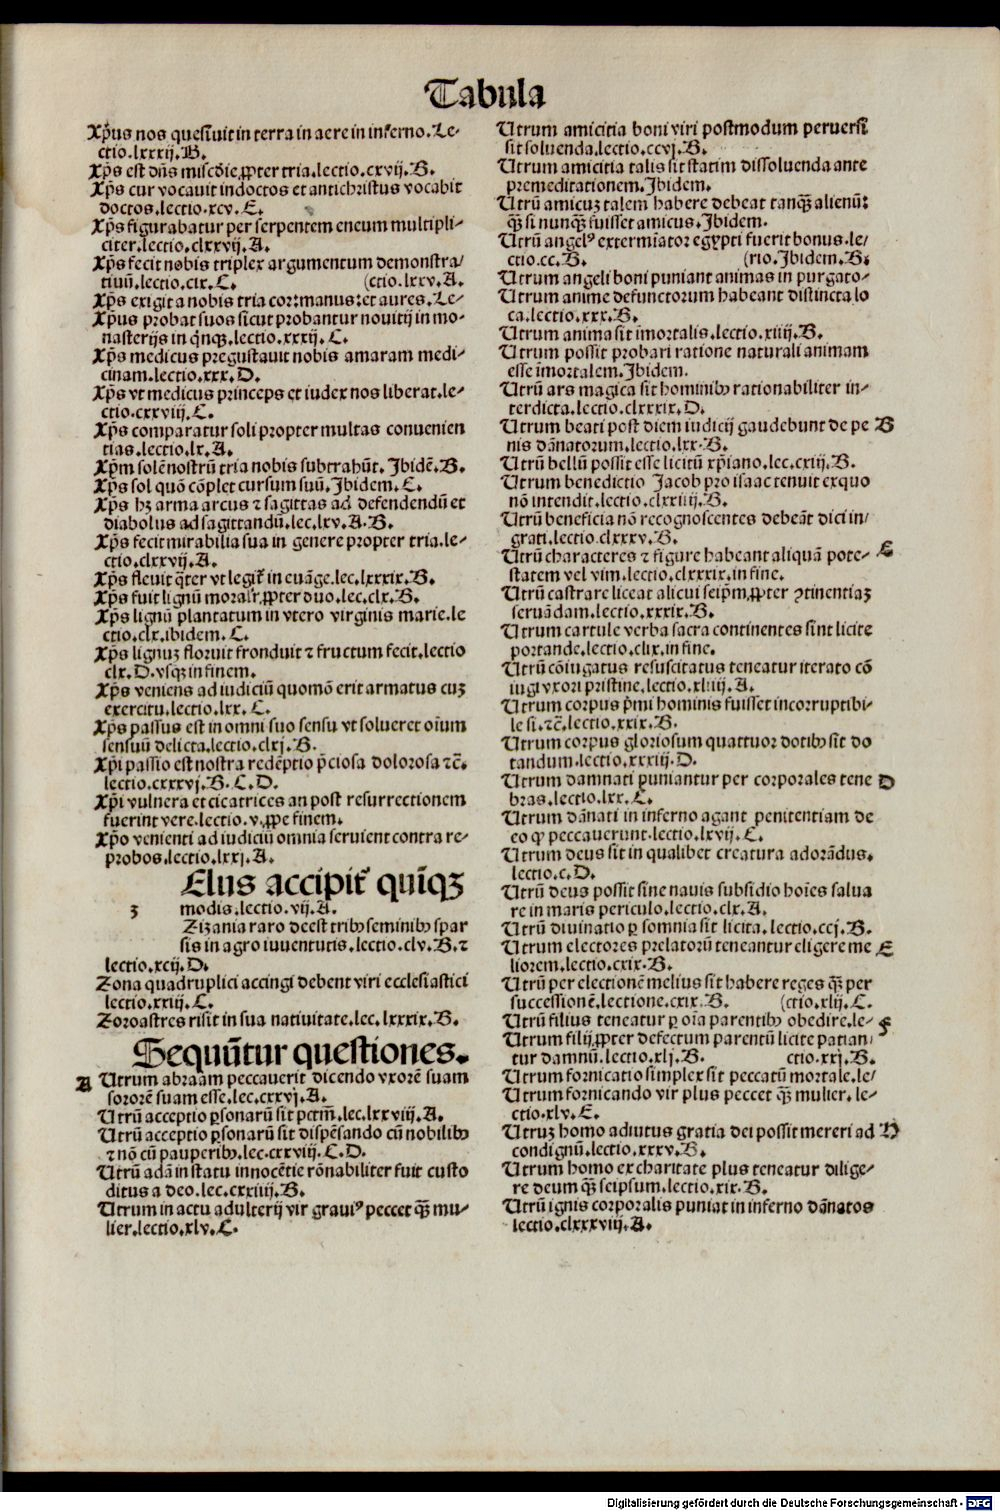 Tabula
Xp̄us nos quesiuit in terra in aere in inferno. Le-
ctio. lxxxij. B.
Xp̄s est dn̄s misc̄die, ꝓpter tria. lectio. cxvij. B.
Xp̄s cur vocauit indoctos et antichristus vocabit
doctos. lectio. xcv. E.
Xp̄s figurabatur per serpentem eneum multipli-
citer. lectio. clxxvij. A.
Xp̄s fecit nobis triplex argumentum demonstra/
tiuū. lectio. cix. C. (ctio. lxxv. A.
Xp̄s exigit a nobis tria cor: manus: et aures. Le-
Xp̄us probat suos sicut probantur nouitij in mo-
nasterijs in q̄nqꝫ. lectio. xxxij. C.
Xp̄s medicus pregustauit nobis amaram medi-
cinam. lectio. xxx. D.
Xp̄s vt medicus princeps et iudex nos liberat. le-
ctio. cxxviij. C.
Xp̄s comparatur soli propter multas conuenien
tias. lectio. lx. A.
Xp̄m solē nostrū tria nobis subtrahūt. Ibidē. B.
Xp̄s sol quō cōplet cursum suū. Ibidem. C.
Xp̄s hꝫ arma arcus ⁊ sagittas ad defendendū et
diabolus ad sagittandū. lec. lxv. A. B.
Xp̄s fecit mirabilia sua in genere propter tria. le-
ctio. clxxvij. A.
Xp̄s fleuit q̄ter vt legit̄ in euāge. lec. lxxxix. B.
Xp̄s fuit lignū moralr̄, ꝓpter duo. lec. clx. B.
Xp̄s lignū plantatum in vtero virginis marie. le
ctio. clx. ibidem. C.
Xp̄s lignuꝫ floruit fronduit ⁊ fructum fecit. lectio
clx. D. vsqꝫ in finem.
Xp̄s veniens ad iudiciū quomō erit armatus cuꝫ
exercitu. lectio. lxx. C.
Xp̄s passus est in omni suo sensu vt solueret oīum
sensuū delicta. lectio. clxj. B.
Xp̄i passio est nostra redēptio p̄ciosa dolorosa ⁊c̄.
lectio. cxxxvj. B. C. D.
Xp̄i vulnera et cicatrices an post resurrectionem
fuerint vere. lectio. v. ꝓpe finem.
Xp̄o venienti ad iudiciū omnia seruient contra re-
probos. lectio. lxxj. A.
Elus accipit̄ quīqꝫ
ꝫ modis. lectio. vij. A.
Zizania raro deest tribꝰ seminibꝰ spar
sis in agro iuuentutis. lectio. clv. B. ⁊
lectio. xcij. D.
Zona quadruplici accingi debent viri ecclesiastici
lectio. xxiij. C.
Zoroastres risit in sua natiuitate. lec. lxxxix. B.
Sequūtur questiones.
A Utrum abraam peccauerit dicendo vxorē suam
sororē suam esse. lec. cxxvj. A.
Utrū acceptio ꝑsonarū sit pctm̄. lec. lxxviij. A.
Utrū acceptio ꝑsonarū sit dispēsando cū nobilibꝰ
⁊ nō cū pauperibꝰ. lec. cxxviij. C. D.
Utrū adā in statu innocētie rōnabiliter fuit custo
ditus a deo. lec. cxxiiij. B.
Utrum in actu adulterij vir grauiꝰ peccet qꝫ̄ mu-
lier. lectio. xlv. C.
Utrum amicitia boni viri postmodum peruersi
sit soluenda. lectio. ccvj. B.
Utrum amicitia talis sit statim dissoluenda ante
premeditationem. Ibidem.
Utrū amicuꝫ talem habere debeat tanqꝫ̄ alienū:
qꝫ̄ si nunqꝫ̄ fuisset amicus. Ibidem.
Utrū angelꝰ exterminator egypti fuerit bonus. le/
ctio. cc. B. (rio. Ibidem. B.
Utrum angeli boni puniant animas in purgato-
Utrum anime defunctorum habeant distincta lo
ca. lectio. xxx. B.
Utrum anima sit īmortalis. lectio. xiiij. B.
Utrum possit probari ratione naturali animam
esse īmortalem. Ibidem.
Utrū ars magica sit hominibꝰ rationabiliter in-
terdicta. lectio. clxxxix. D.
Utrum beati post diem iudicij gaudebunt de pe B
nis dānatorum. lectio. lxx. B.
Utrū bellū possit esse licitū xp̄iano. lec. cxiij. B.
Utrum benedictio Jacob pro isaac tenuit ex quo
nō intendit. lectio. clxxiiij. B.
Utrū beneficia nō recognoscentes debeāt dici in/
grati. lectio. clxxxv. B.
Utrū characteres ⁊ figure habeant aliquā pote- C
statem vel vim. lectio. clxxxix. in fine.
Utrū castrare liceat alicui seip̄m, ꝓpter ꝯtinentiaꝫ
seruādam. lectio. xxxix. B.
Utrum cartule verba sacra continentes sint licite
portande. lectio. clix. in fine.
Utrū cōiugatus resuscitatus teneatur iterato cō
iugi vxori pristine. lectio. xliij. A.
Utrum corpus p̄mi hominis fuisset incorruptibi-
le si. ⁊c̄. lectio. xxix. B.
Utrum corpus gloriosum quattuor dotibꝰ sit do
tandum. lectio. xxxiij. D.
Utrum damnati puniantur per corporales tene D
bras. lectio. lxx. C.
Utrum dānati in inferno agant penitentiam de
eo qꝙ peccauerunt. lectio. lxvij. C.
Utrum deus sit in qualibet creatura adorādus.
lectio. c. D.
Utrū deus possit sine nauis subsidio hoīes salua
re in maris periculo. lectio. clx. A.
Utrū diuinatio ꝑ somnia sit licita. lectio. ccj. B.
Utrum electores prelatorū teneantur eligere me E
liorem. lectio. cxix. B.
Utrū per electionē melius sit habere reges qꝫ̄ per
successionē. lectione. cxix. B. (ctio. xlij. C.
Utrū filius teneatur ꝑ oīa parentibꝰ obedire. le- F
Utrum filij, ꝓpter defectum parentū licite patian/
tur damnū. lectio. xlj. B. ctio. xxj. B.
Utrum fornicatio simplex sit peccatū mortale. le/
Utrum fornicando vir plus peccet qꝫ̄ mulier. le-
ctio. xlv. E.
Utruꝫ homo adiutus gratia dei possit mereri ad H
condignū. lectio. xxxv. B.
Utrum homo ex charitate plus teneatur dilige-
re deum qꝫ̄ seipsum. lectio. xix. B.
Utrū ignis corporalis puniat in inferno dānatos
lectio. clxxxviij. A.
Digitalisierung gefördert durch die Deutsche Forschungsgemeinschaft - DFG